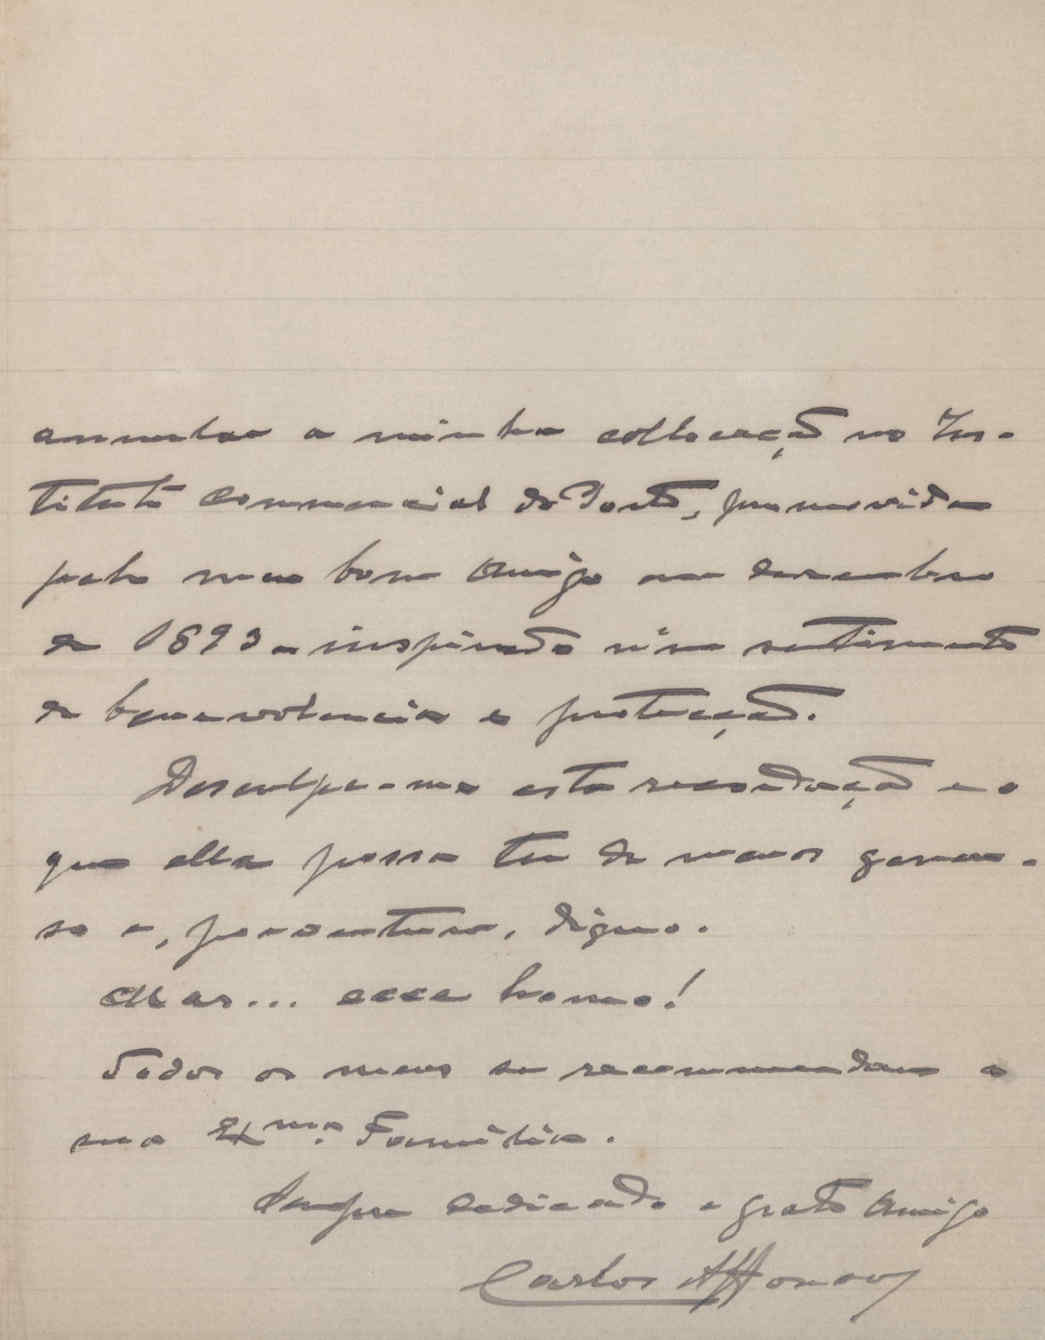 annullar a minha collocação no Ins-
tituto Commercial do Porto, promovida
pelo meu bom amigo em dezembro
de 1893 e inspirada n'um sentimento
de benevolencia e protecção.
Desculpe-me esta recordação e o
que ella possa ter de menos genero-
so e, porventura, digno.
Mas... ecce homo!
Todos os meus se recommendam a
sua Exma. Familia.
Sempre dedicado e grato amigo
Carlos Affonso